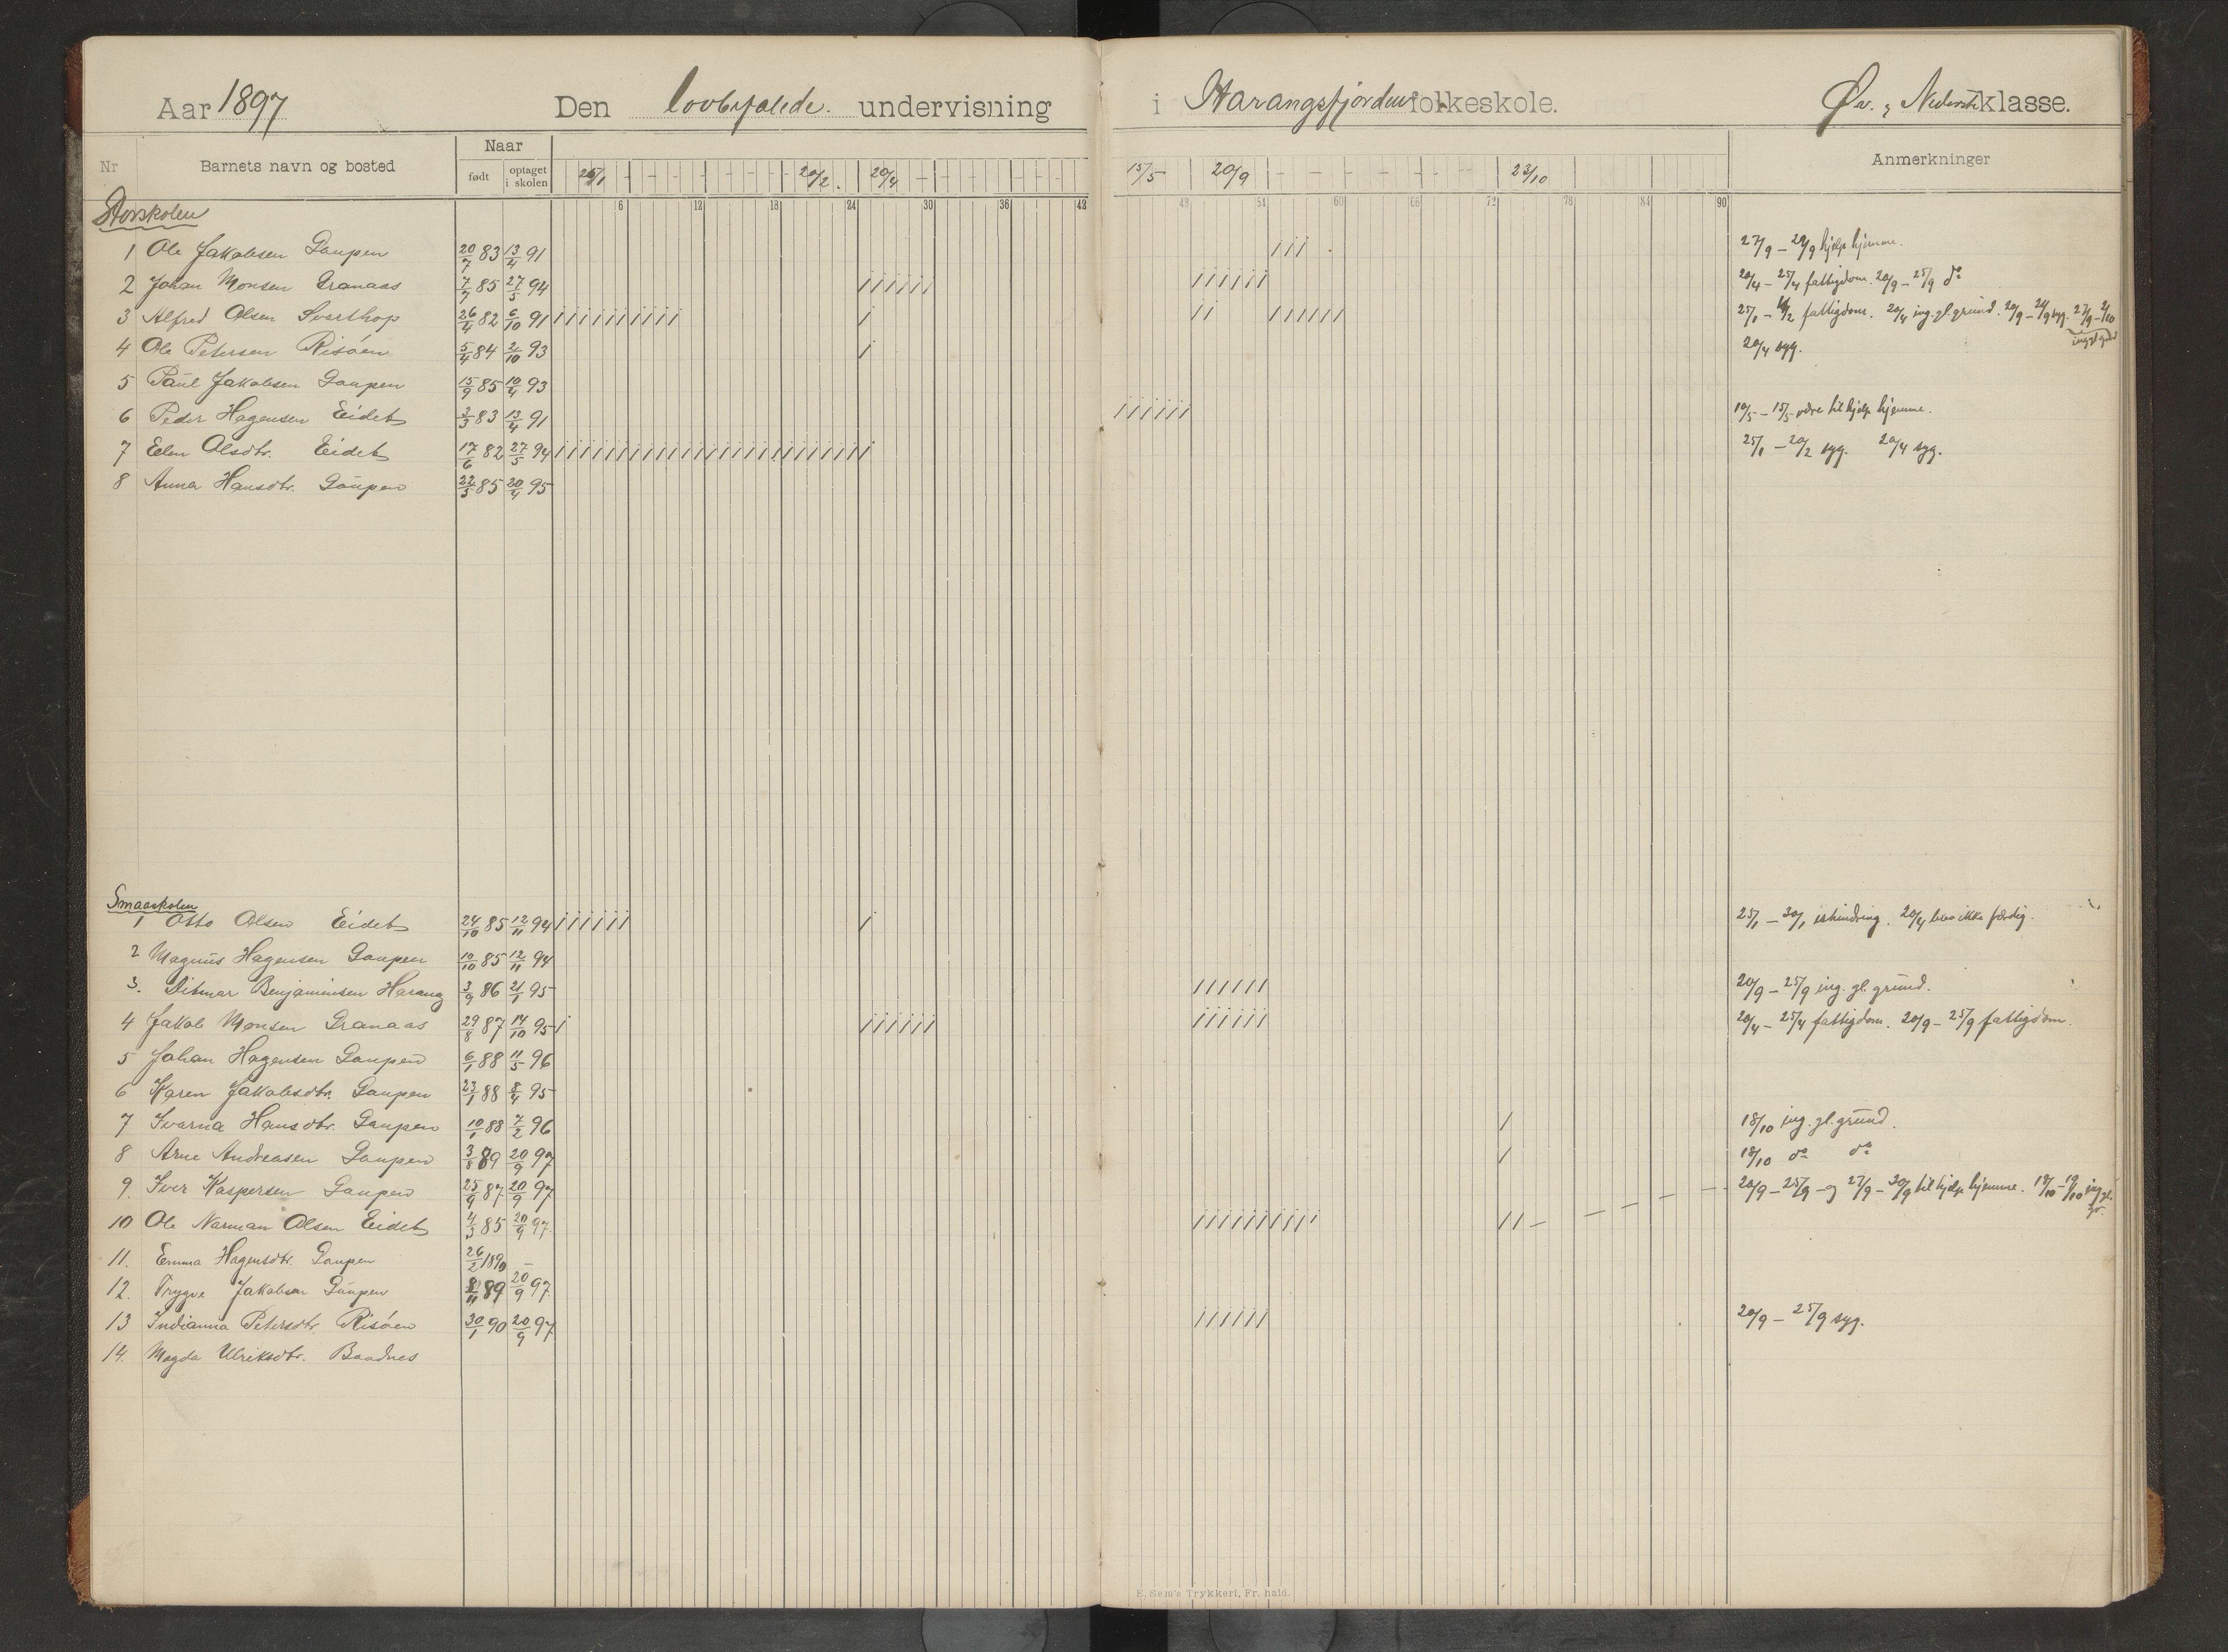 Aar 1897 Den lovbefalede. undervisning i Harangsfjorden folkeskole. Øv. & Nederste klasse.
Nr Barnets navn og bosted Naar født optaget i skolen 25/1 20/2. 20/4 15/5 20/9 23/10 Anmerkninger
6 12 18 24 30 36 42 48 54 60 66 72 78 84 90
Storskolen
1 Ole Jakobsen Gaupen 20/7 83 13/4 91 27/9 – 29/9 hjelp hjemme.
2 Johan Monsen Granaas 7/7 85 27/5 94 20/4 – 25/4 fattigdom. 20/9 – 25/9 do
3 Alfred Olsen Svarthop 26/4 82 6/10 91 25/1 – fattigdom. 20/4 ing. gl. grund. 20/9 – 21/9 syg. 27/9 – 2/10 ing gl grd
4 Ole Petersen Risöen 5/4 84 2/10 93 20/4 syg.
5 Paul Jakobsen Gaupen 15/9 85 10/4 93
6 Peder Hagensen Eidet 3/3 83 13/4 91 10/5 – 15/5 være til hjelp hjemme.
7 Elen Olsdtr. Eidet 17/6 82 27/5 94 25/1 – 20/2 syg. 20/4 syg.
8 Anna Hansdtr. Gaupen 22/5 85 20/4 95
Smaaskolen
1 Otto Olsen Eidet 24/10 85 12/11 94 25/1 – 30/1 ishindring. 20/4 blev ikke færdig.
2 Magnus Hagensen Gaupen 10/10 85 12/11 94
3. Ditmar Benjaminsen Harang 3/9 86 21/1 95 20/9 – 25/9 ing. gl. grund.
4 Jakob Monsen Granaas 29/8 87 14/10 95 20/4 – 25/4 fattigdom. 20/9 – 25/9 fattigdom.
5 Johan Hagensen Gaupen 6/1 88 11/5 96
6 Karen Jakobsdtr. Gaupen 23/1 88 8/4 95
7 Svarna Hansdtr. Gaupen 10/1 88 7/2 96 18/10 ing. gl. grund.
8 Arne Andreasen Gaupen 3/8 89 20/9 97 18/10 do do
9. Iver Kaspersen Gaupen 25/9 87 20/9 97
10 Ole Narman Olsen Eidet 4/3 85 20/9 97. 20/9 – 25/9 – og 27/9 – 30/9 til hjelp hjemme. 18/10 – 19/10 ing gl. gr.
11. Emma Hagensdtr. Gaupen 26/2 1890 –
12. Trygve Jakobsen Gaupen 8/11 89 20/9 97.
13 Indianna Petersdtr. Risöen 30/1 90 20/9 97 20/9 – 25/9 syg.
14. Magda Ulriksdtr. Baadnes
E. Sem's Trykkeri, Fr. hald.